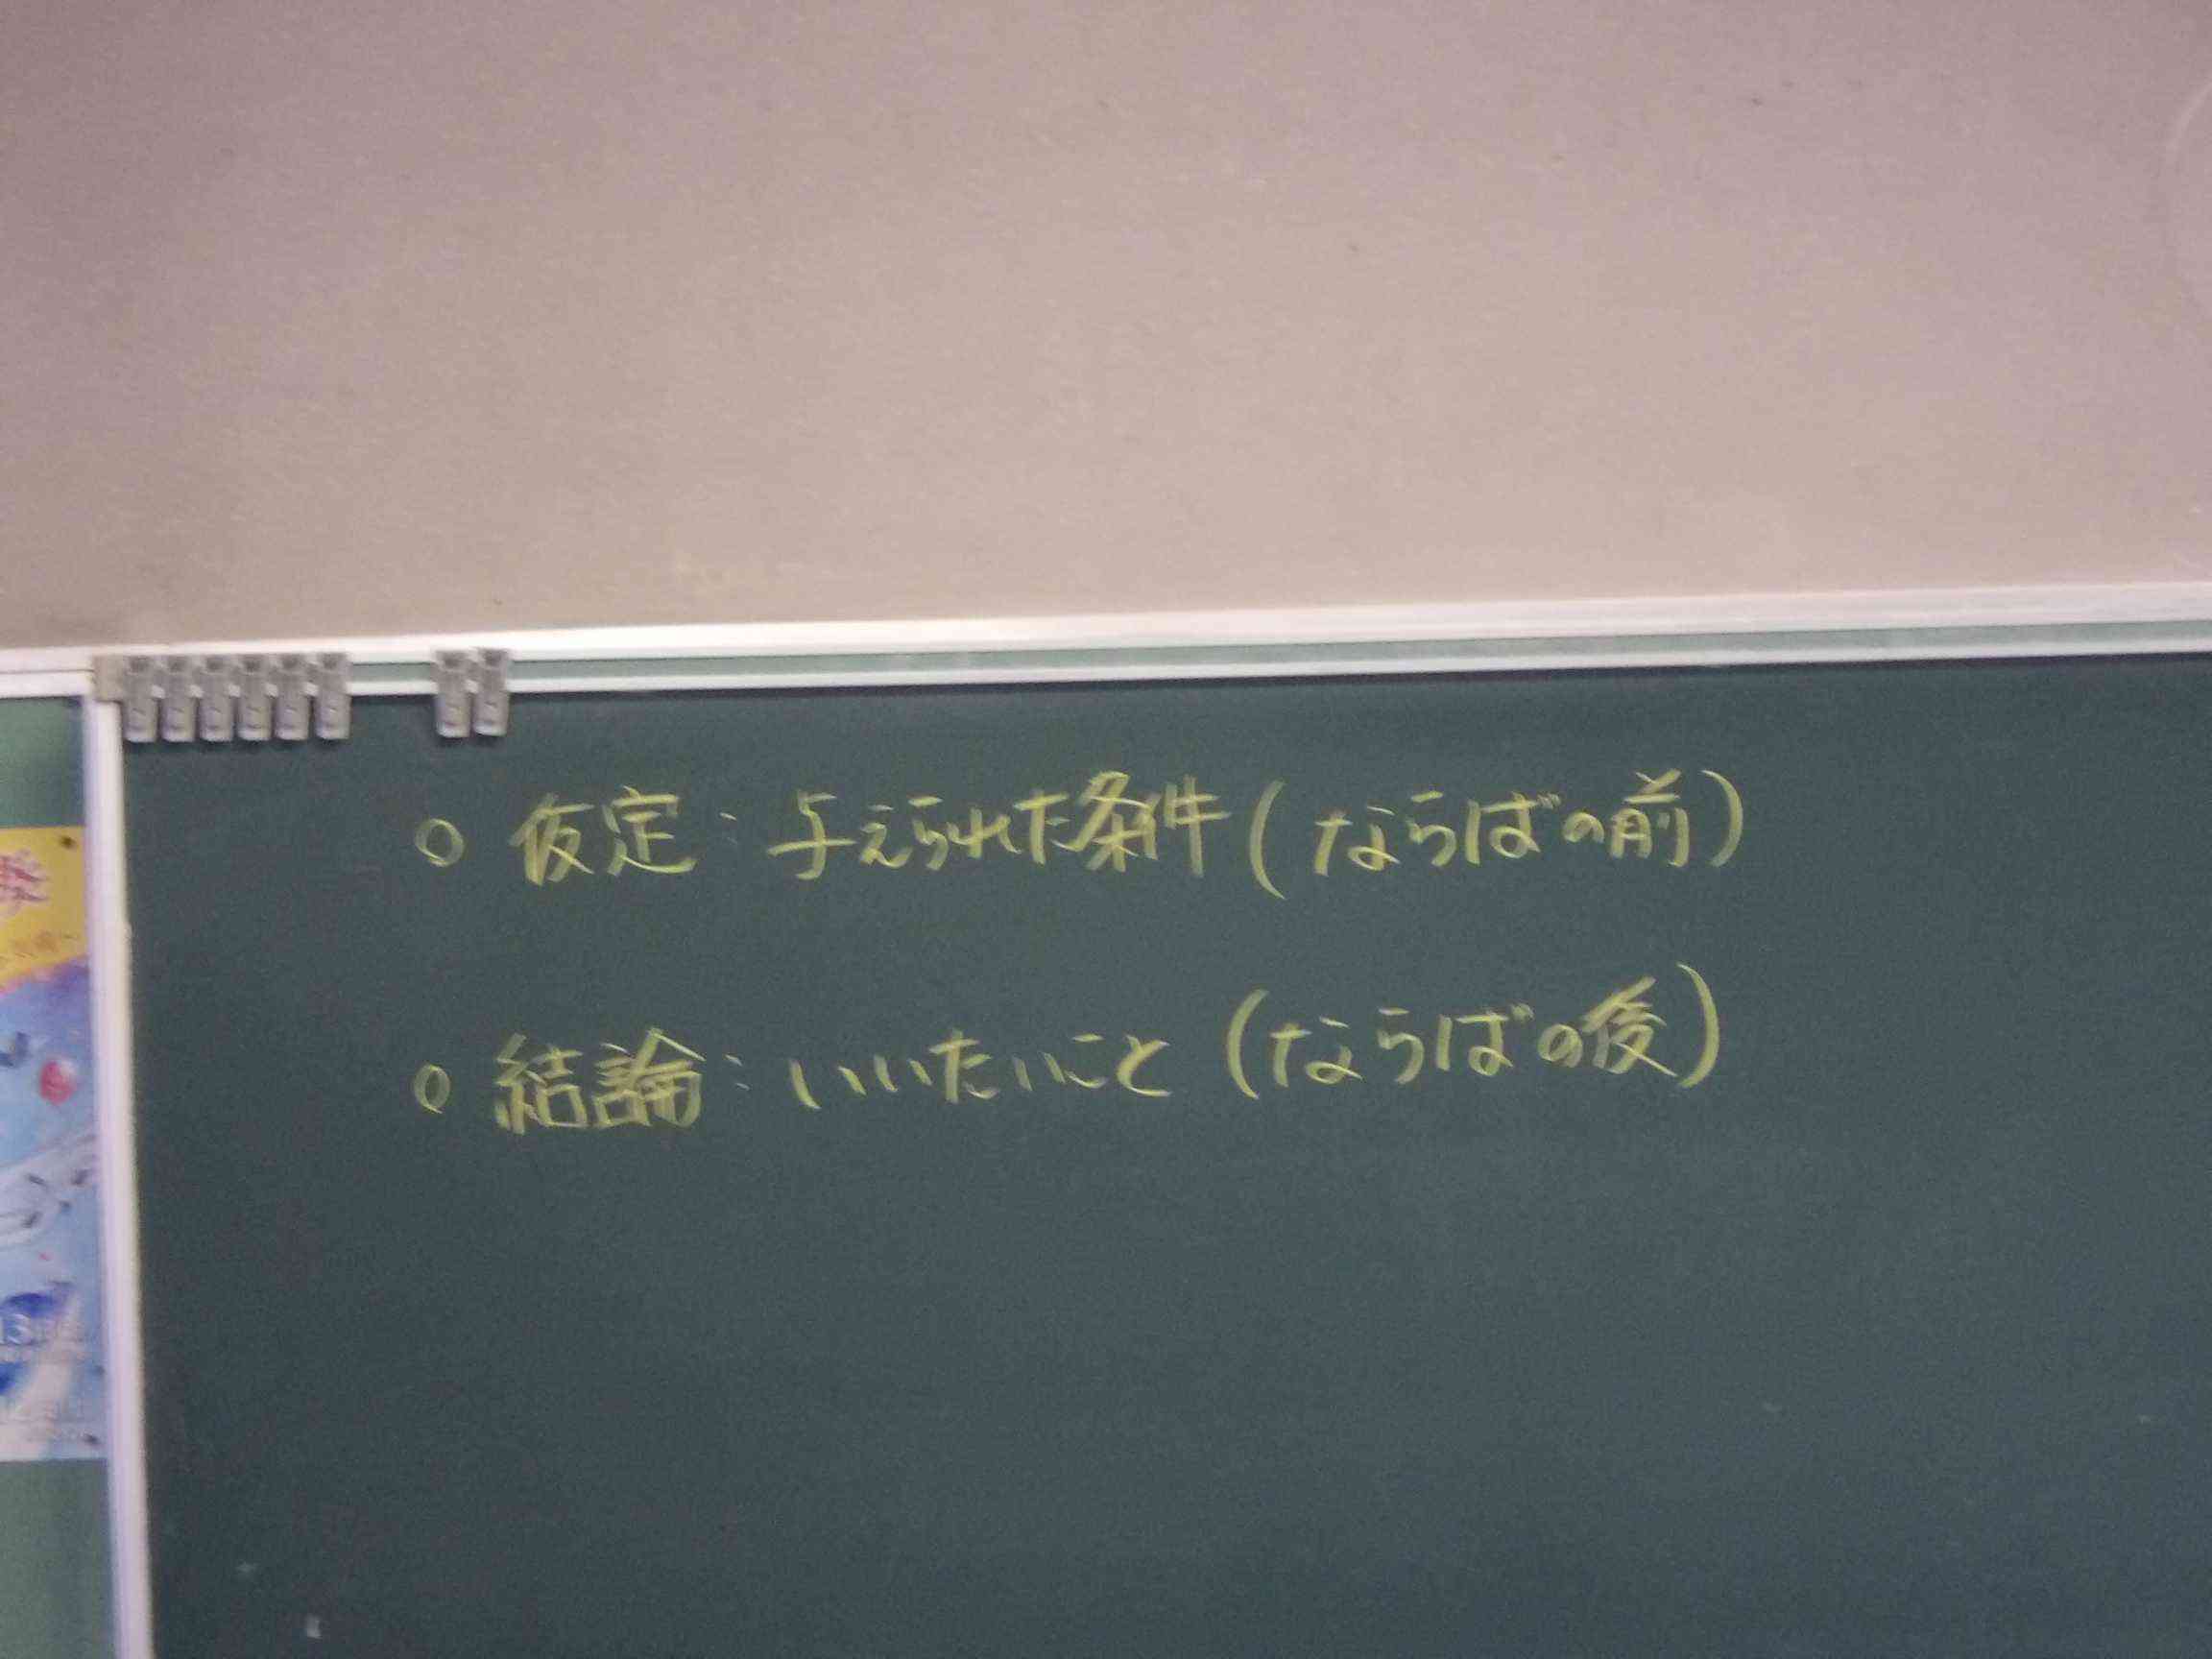 ○ 仮定：与えられた条件（ならばの前）
○ 結論：いいたいこと（ならばの後）